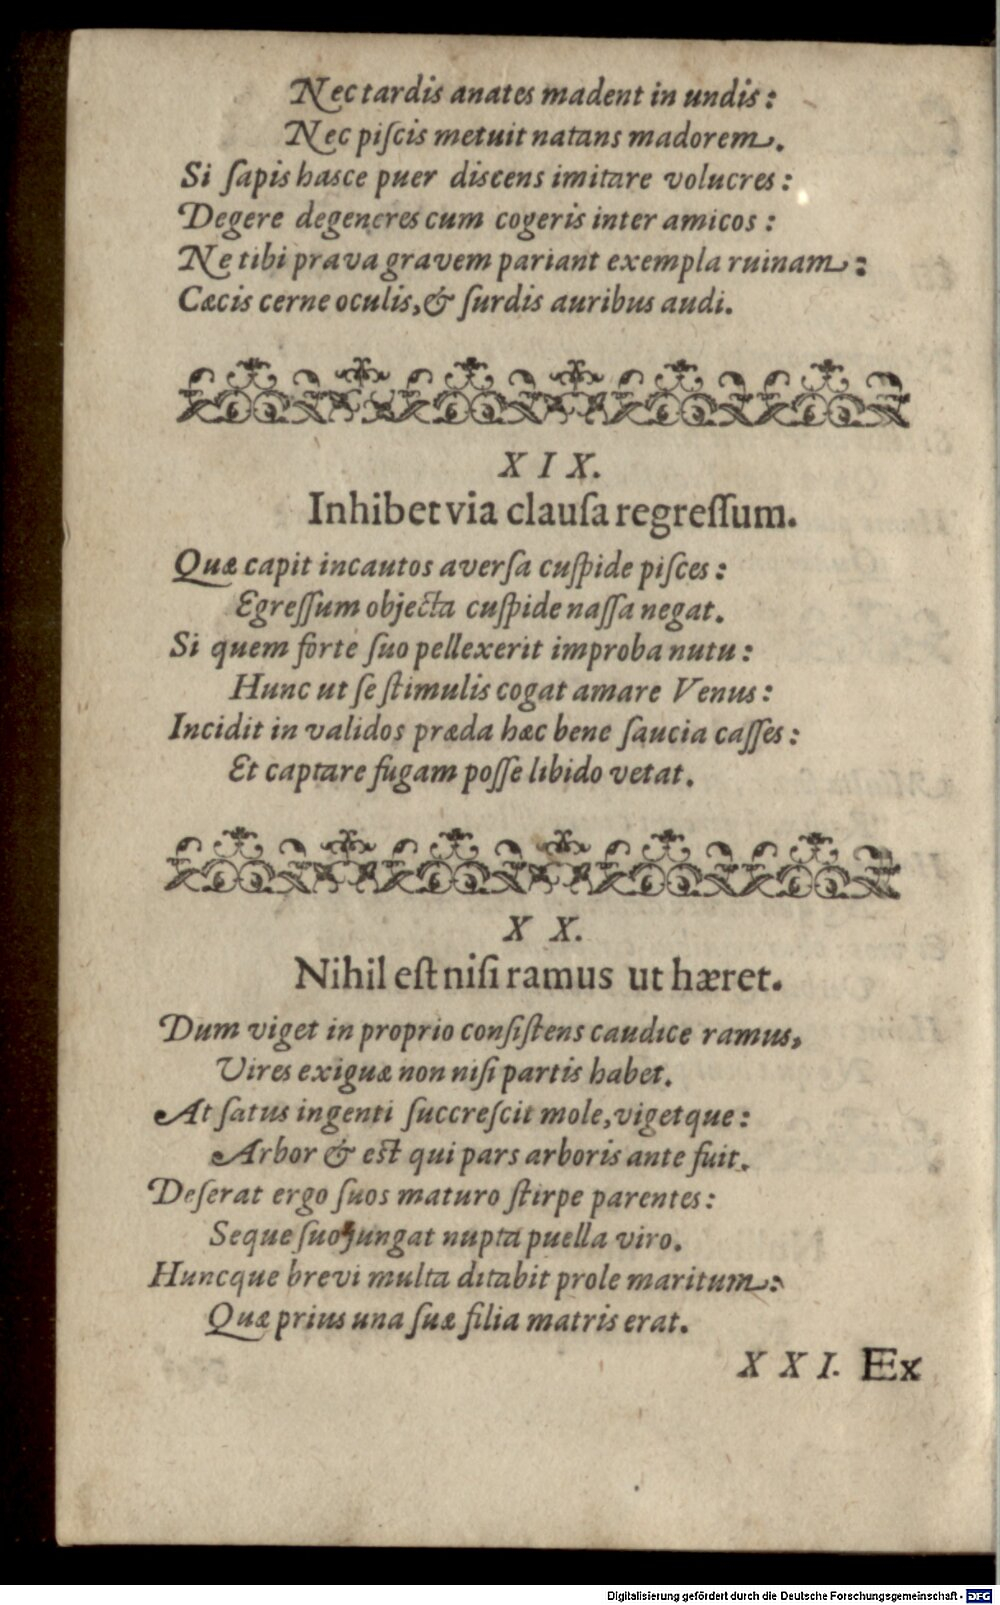 Nec tardis anates madent in undis:
Nec piſcis metuit natans madorem.
Si ſapis hasce puer discens imitare volucres:
Degere degeneres cum cogeris inter amicos:
Ne tibi prava gravem pariant exempla ruinam:
Cæcis cerne oculis, & ſurdis auribus audi.
XIX.
Inhibet via clauſa regreſſum.
Quæ capit incautos averſa cuſpide piſces:
Egreſſum objecta cuſpide naſſa negat.
Si quem forte ſuo pellexerit improba nutu:
Hunc ut ſe ſtimulis cogat amare Venus:
Incidit in validos præda hæc bene ſaucia caſſes:
Et captare fugam poſſe libido vetat.
XX.
Nihil eſt niſi ramus ut hæret.
Dum viget in proprio conſiſtens caudice ramus,
Vires exiguæ non niſi partis habet.
At ſatus ingenti ſuccreſcit mole, vigetque:
Arbor & eſt qui pars arboris ante fuit.
Deſerat ergo ſuos maturo ſtirpe parentes:
Seque ſuo jungat nupta puella viro.
Huncque brevi multa ditabit prole maritum:
Quæ prius una ſuæ filia matris erat.
XXI. Ex
Digitalisierung gefördert durch die Deutsche Forschungsgemeinschaft - DFG